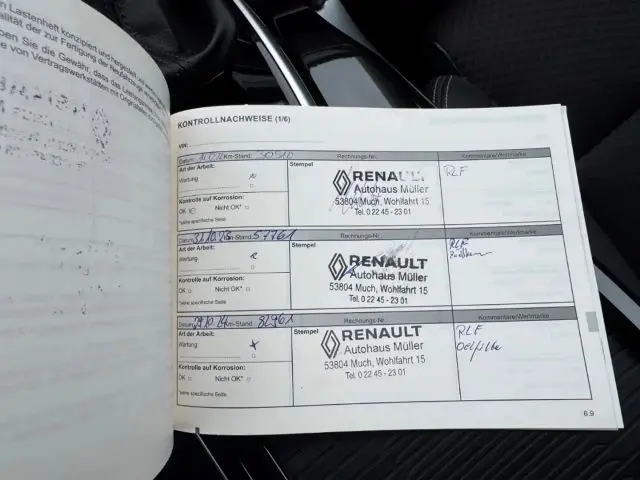 n Lastenheft konzipiert und hergestellt, mit
alität der zur Fertigung der Neufahrzeuge verwendeten
ben Sie die Gewähr, dass das Leistungsniveau
e von Vertragswerkstätten mit Originalteilen
KONTROLLNACHWEISE (1/6)
VIN:
Datum: Km-Stand: 30510 Rechnungs-Nr.: Kommentare/Wertmarke
Art der Arbeit: Stempel
Wartung
Kontrolle auf Korrosion:
OK Nicht OK*
*siehe spezifische Seite
RENAULT
Autohaus Müller
53804 Much, Wohlfahrt 15
Tel. 0 22 45 - 23 01
RLF
Datum: 31.10.23 Km-Stand: 57761 Rechnungs-Nr.: Kommentare/Wertmarke
Art der Arbeit: Stempel
Wartung
Kontrolle auf Korrosion:
OK Nicht OK*
*siehe spezifische Seite
RENAULT
Autohaus Müller
53804 Much, Wohlfahrt 15
Tel. 0 22 45 - 23 01
RLF
Datum: 29.10.24 Km-Stand: 82961 Rechnungs-Nr.: Kommentare/Wertmarke
Art der Arbeit: Stempel
Wartung x
Kontrolle auf Korrosion:
OK Nicht OK*
*siehe spezifische Seite
RENAULT
Autohaus Müller
53804 Much, Wohlfahrt 15
Tel. 0 22 45 - 23 01
RLF
Oelfilter
6.9